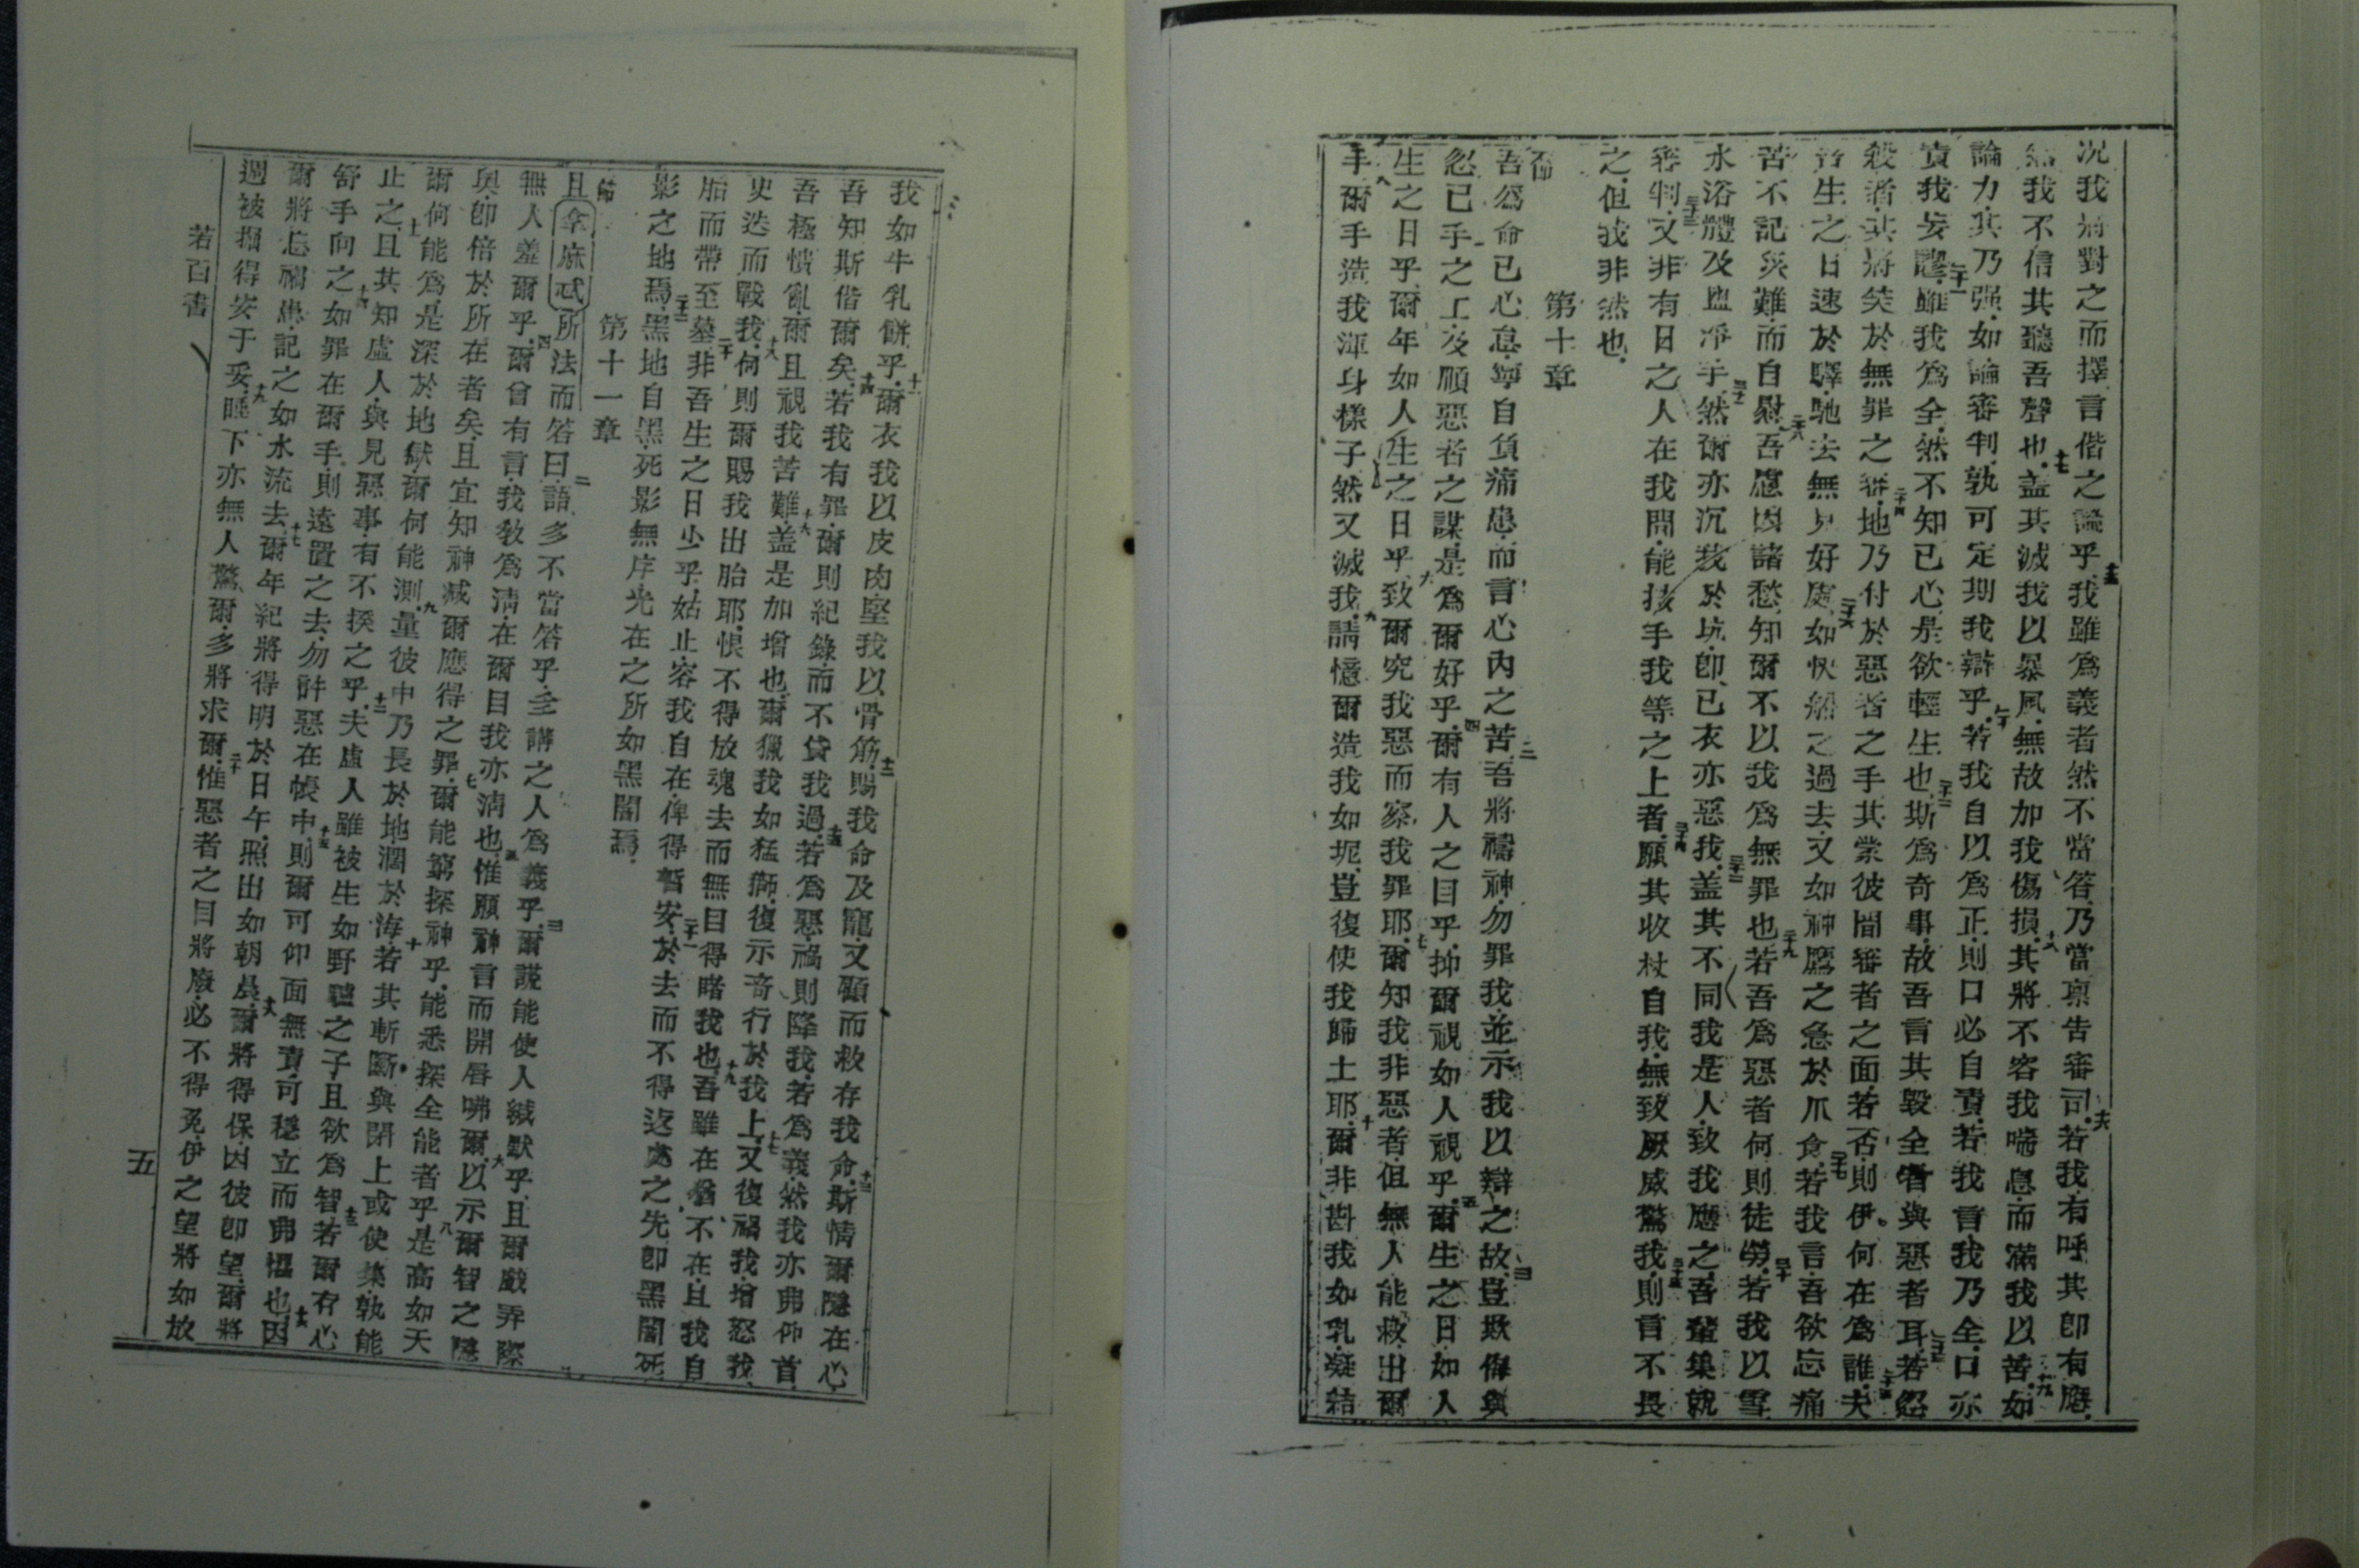 况我將對之而擇言偕之論乎我雖爲義者然不當答乃當禀告審司若我有呼其卽有應
然我不信其聽吾聲也盖其滅我以暴風無故加我傷損其將不容我喘息而滿我以苦如
論力其乃强如論審判孰可定期我辯乎若我自以爲正則口必自責若我言我乃全口亦
責我妄謬雖我爲全然不知已心是欲輕生也斯爲奇事故吾言其毀全者與惡者耳若忽
殺者其將笑於無罪之審地乃付於惡者之手其蒙彼間審者之面若否則伊何在爲誰夫
吾生之日速於驛馳去無見好處如快船之過去又如神鷹之急於爪食若我言吾欲忘痛
苦不記災難而自慰吾慮因諸愁知爾不以我爲無罪也若吾爲惡者何則徒勞若我以雪
水浴體及盥凈手然爾亦沉我於坑卽已衣亦惡我盖其不同我是人致我應之吾輩集就
審判又非有日之人在我間能按手我等之上者願其收杖自我無致厥威驚我則言不畏
之但我非然也
第十章
吾爲命已心怠寧自負痛患而言心內之苦吾將禱神勿罪我並示我以辯之故豈欺侮與
忽已手之工及順惡者之謀是爲爾好乎爾有人之目乎抑爾視如人視乎爾生之日如人
生之日乎爾年如人生之日乎致爾究我惡而察我罪耶爾知我非惡者但無人能救出爾
手爾手造我渾身樣子然又滅我請憶爾造我如坭豈復使我歸土耶爾非斟我如乳凝結
我如牛乳餅乎爾衣我以皮肉堅我以骨筋賜我命及寵又顧而救存我命斯情爾隱在心
吾知斯偕爾矣若我有罪爾則紀錄而不貸我過若爲惡禍則降我若爲義然我亦弗仰首
吾極憒亂爾且視我苦難盖是加增也爾獵我如猛獅復示奇行於我上又復禍我增怒我
史迭而戰我何則爾賜我出胎耶恨不得放魂去而無目得睹我也吾雖在猶不在且我自
胎而帶至墓非吾生之日少乎姑止容我自在俾得暫安於去而不得返處之先卽黑闇死
影之地焉黑地自黑死影無序光在之所如黑闇焉
第十一章
且拿麻忒所法而答曰語多不當答乎多講之人爲義乎爾謊能使人緘默乎且爾戲弄際
無人羞爾乎爾曾有言我敎爲淸在爾目我亦淸也惟願神言而開唇嘶爾以示爾智之隱
奧卽倍於所在者矣且宜知神減爾應得之罪爾能窮探神乎能悉探全能者乎是高如天
爾何能爲是深於地獄爾何能測量彼中乃長於地濶於海若其斬斷與閉上或使集孰能
止之且其知虛人與見惡事有不揆之乎夫虛人雖被生如野驢之子且欲爲智若爾存心
舒手向之如罪在爾手則遠置之去勿許惡在帳中則爾可仰面無責可穩立而弗懼也因
爾將忘禍患記之如水流去爾年紀將得明於日午照出如朝晨爾將得保因彼卽望爾將
週被掘得安于妥睡下亦無人驚爾多將求爾惟惡者之目將廢必不得免伊之望將如放
若百書
五